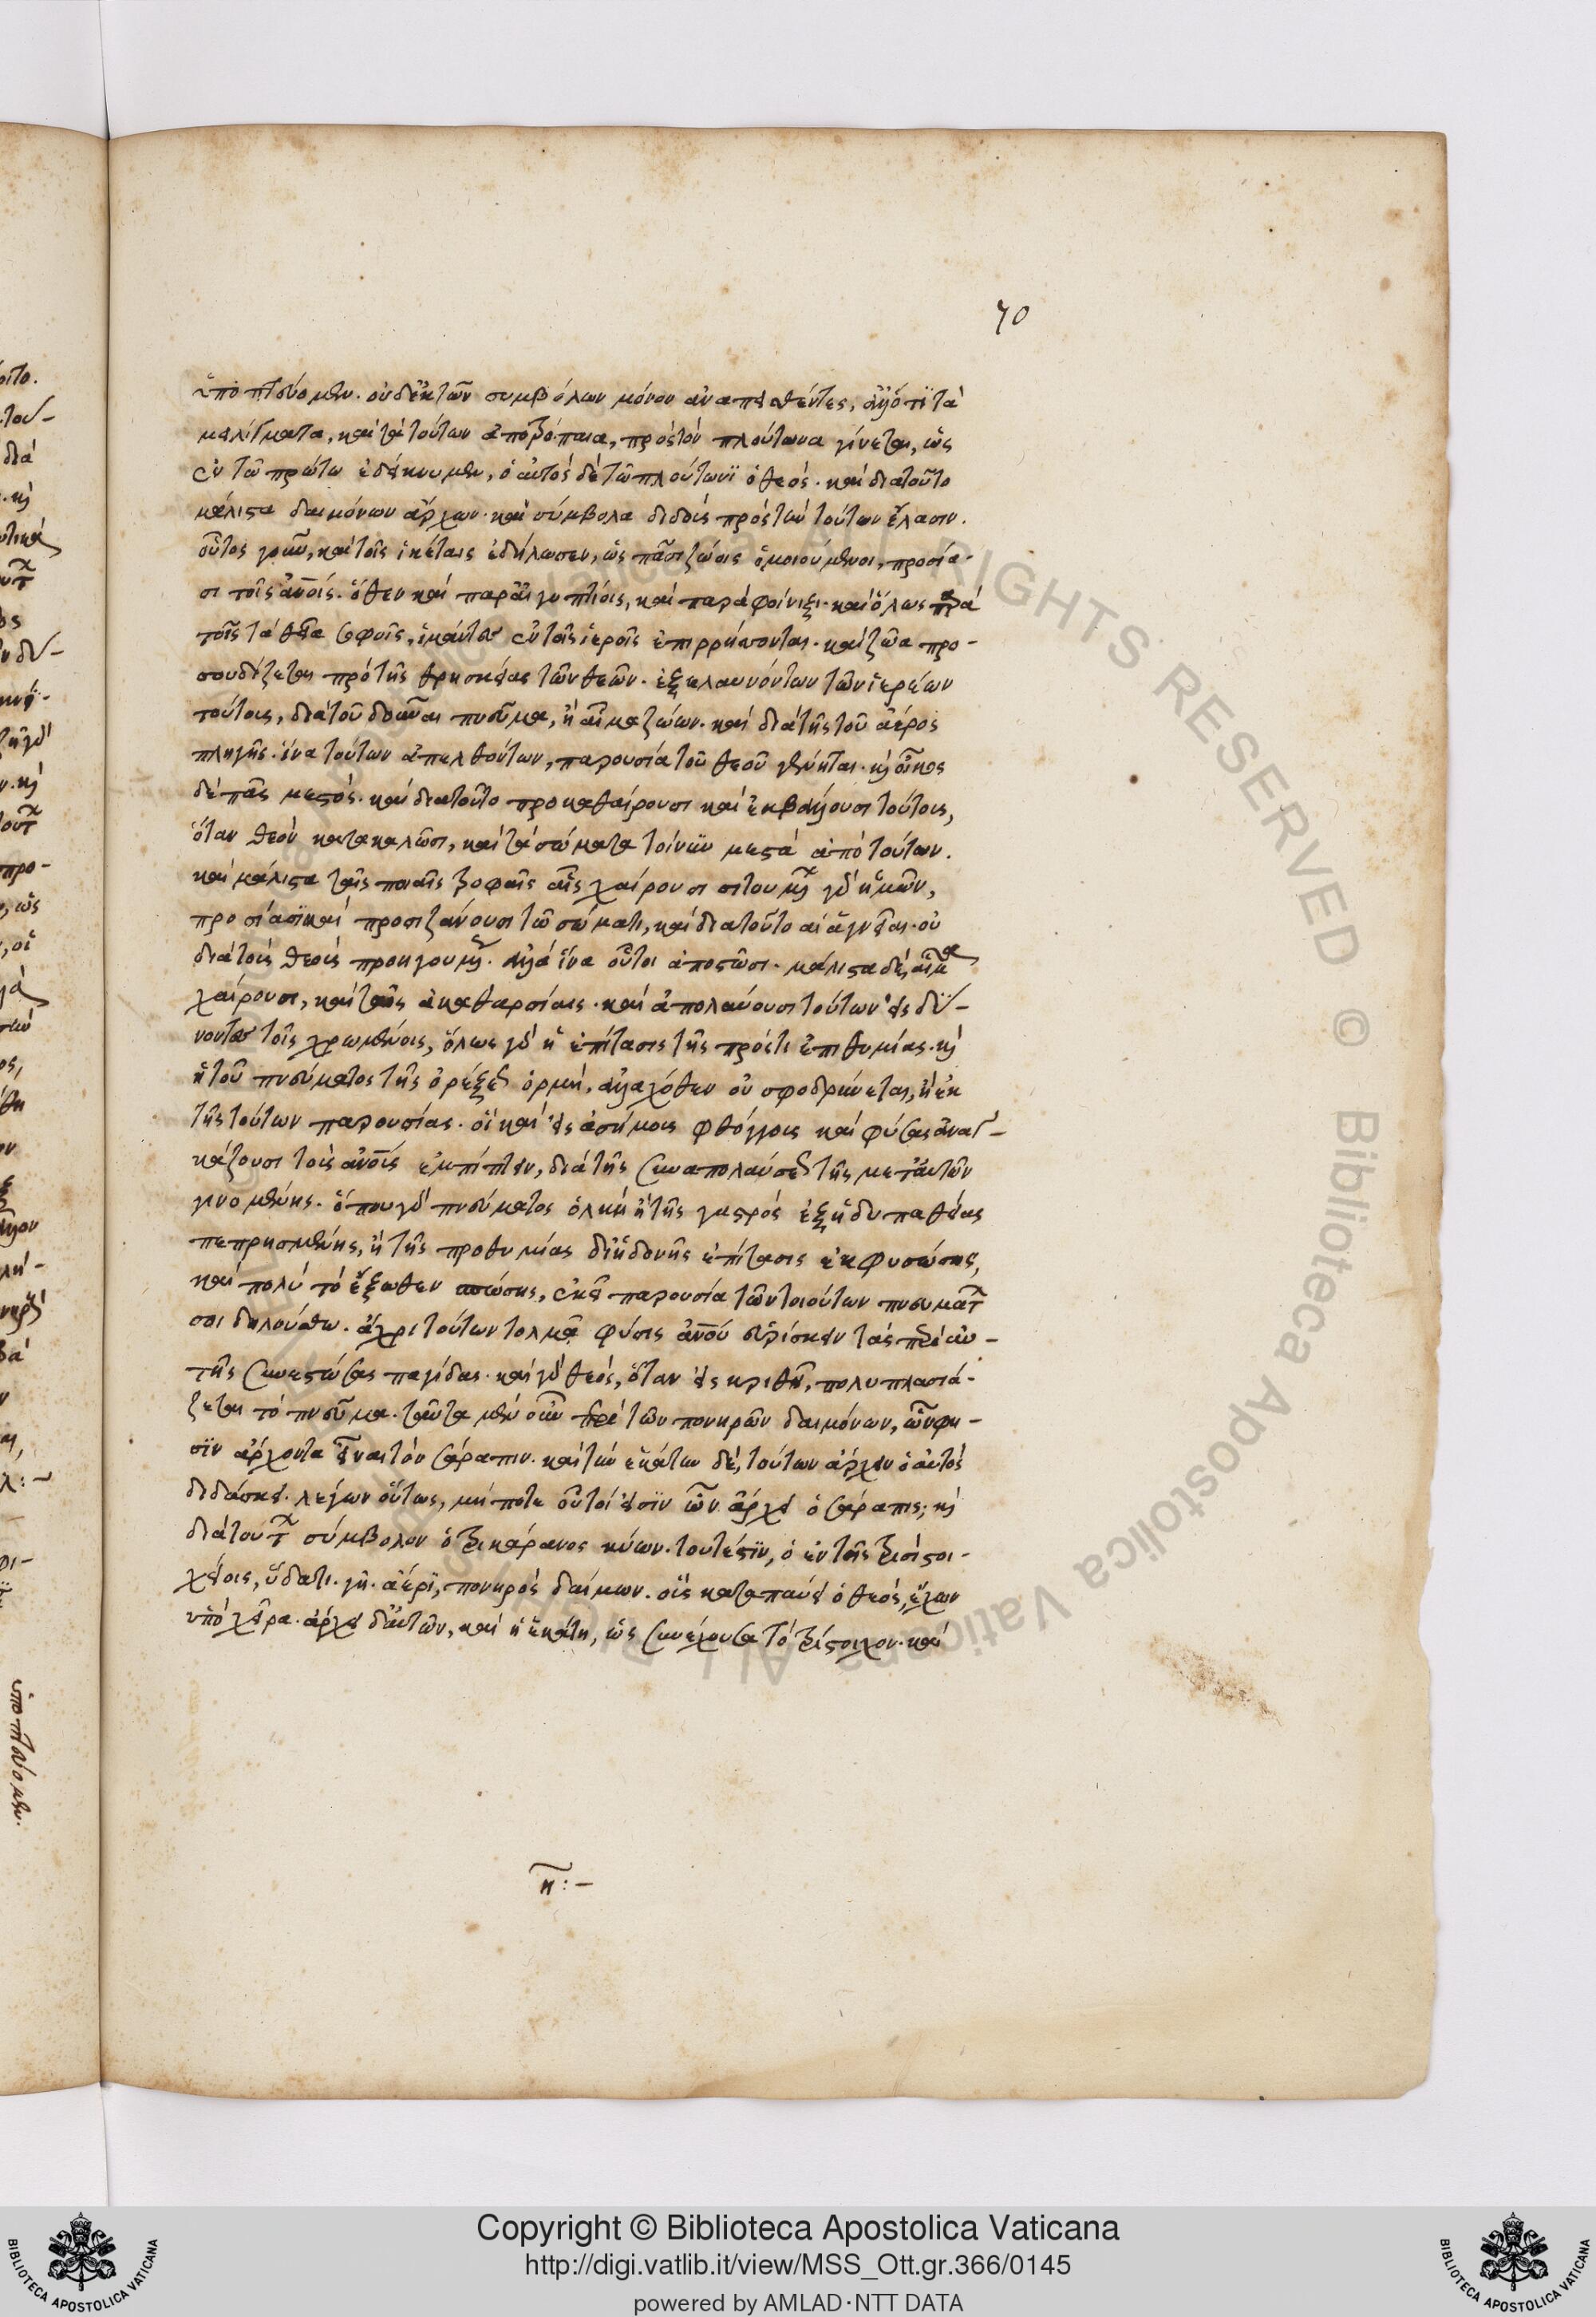 70
ὑποπτεύομεν. οὐδ' ἐκ τῶν συμβόλων μόνον ἀναπεισθέντες, ἀλλ' ὅτι τὰ
μειλίγματα, καὶ τὰ τούτων ἀποτρόπαια, πρὸς τὸν πλούτωνα γίνεται, ὡς
ἐν τῶ πρώτω ἐδείκνυμεν, ὁ αὐτὸς δὲ τῶ πλούτωνϊ ὁ θεός. καὶ διατοῦτο
μάλιστα δαιμόνων ἄρχων. καὶ σύμβολα διδοὺς πρὸς τὴν τούτων ἔλασιν.
οὗτος γοῦν, καὶ τοῖς ἱκέταις ἐδήλωσεν, ὡς πᾶσι ζώοις ὁμοιούμενοι, προσία-
σι τοῖς ἀνοῖς. ὅθεν καὶ παρ' αἰγυπτίοις, καὶ παρὰ φοίνιξι. καὶ ὅλως παρὰ
τοῖς τὰ θεῖα σοφοῖς, ἱμάντες ἐν τοῖς ἱεροῖς ἐπιρρήσσονται. καὶ ζῶα προ-
σουδίζεται πρὸ τῆς θρησκείας τῶν θεῶν. ἐξελαυνόντων τῶν ἱερέων
τούτους, διὰ τοῦ δοῦναι πνεῦμα, ἢ αἷμα ζώων. καὶ διὰ τῆς τοῦ ἀέρος
πληγῆς. ἵνα τούτων ἀπελθόντων, παρουσία τοῦ θεοῦ γένηται. καὶ οἶκος
δὲ πᾶς μεστός. καὶ διατοῦτο προκαθαίρουσι καὶ ἐκβάλλουσι τούτους,
ὅταν θεὸν κατακαλῶσι, καὶ τὰ σώματα τοίνυν μεστὰ ἀπὸ τούτων.
καὶ μάλιστα ταῖς ποιαῖς τροφαῖς αἷς χαίρουσι σιτουμένων γὰρ ἡμῶν,
προσίασϊ καὶ προσιζάνουσι τῶ σώματι, καὶ διατοῦτο αἱ ἁγνεῖαι. οὐ
διὰ τοὺς θεοὺς προηγουμένως. ἀλλὰ ἵνα οὗτοι ἀποστῶσι. μάλιστα δὲ, αἵματι
χαίρουσι, καὶ ταῖς ἀκαθαρσίαις. καὶ ἀπολαύουσι τούτων εἰς δύ-
νοντες τοῖς χρωμένοις, ὅλως γὰρ ἡ ἐπίτασις τῆς πρός τι ἐπιθυμίας. καὶ
ἡ τοῦ πνεύματος τῆς ὀρέξεως ὁρμή. ἀλλαχόθεν οὐ σφοδρύνεται, ἢ ἐκ
τῆς τούτων παρουσίας. οἳ καὶ εἰς ἀσήμους φθόγγους καὶ φύσας ἀναγ-
κάζουσι τοὺς ἀνοὺς ἐμπίπτειν, διὰ τῆς συναπολαύσεως τῆς μετ' αὐτῶν
γινομένης. ὅπου γὰρ πνεύματος ὁλκὴ ἢ τῆς γαστρὸς ἐξ ἡδυπαθείας
πεπρησμένης, ἢ τῆς προθυμίας δι' ἡδονῆς ἐπίτασις ἐκφυσώσης,
καὶ πολὺ τὸ ἔξωθεν σπώσης, ἐκεῖ παρουσία τῶν τοιούτων πνευμάτων
σοι δηλούσθω. ἄχρι τούτων τολμᾶ φύσις ἀνοῦ εὑρίσκειν τὰς περὶ αὐ-
τῆς συνεστώσας παγίδας. καὶ γὰρ θεὸς, ὅταν εἰς κριθῆ, πολυπλασιά-
ζεται τὸ πνεῦμα. ταῦτα μὲν οὖν περὶ τῶν πονηρῶν δαιμόνων, ὧν φη-
σϊν ἄρχοντα εἶναι τὸν σάραπιν. καὶ τὴν ἑκάτην δὲ, τούτων ἄρχειν ὁ αὐτὸς
διδάσκει. λέγων οὕτως, μή ποτε οὗτοί εἰσϊν ὧν ἄρχει ὁ σάραπις; καὶ
διὰ τούτων σύμβολον ὁ τρικάρανος κύων. τουτέστϊν, ὁ ἐν τοῖς τρισὶ στοι-
χείοις, ὕδατι. γῆ. ἀέρϊ, πονηρὸς δαίμων. οὓς καταπαύει ὁ θεὸς, ἔχων
ὑπὸ χεῖρα. ἄρχει δ' αὐτῶν, καὶ ἡ ἑκάτη, ὡς συνέχουσα τὸ τρίστοιχον. καὶ
η:-
ὑποπτεύομεν.
Copyright © Biblioteca Apostolica Vaticana
http://digi.vatlib.it/view/MSS_Ott.gr.366/0145
powered by AMLAD·NTT DATA